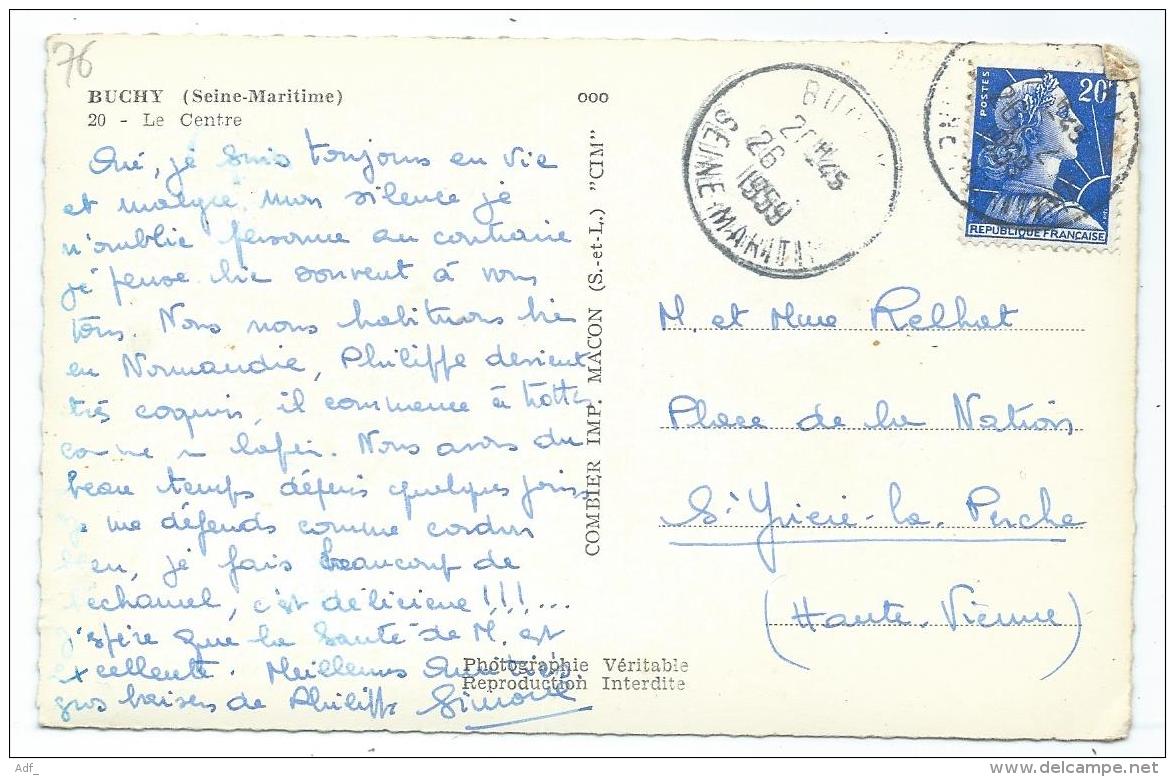 76
BUCHY (Seine-Maritime)
20 - Le Centre
ooo
Oui, je suis toujours en vie
et malgré mon silence je
n'oublie personne au contraire
je pense bien souvent à vous
tous. Nous nous habituons bien
en Normandie, Philippe devient
très coquin, il commence à trotter
comme un lapin. Nous avons du
beau temps depuis quelques jours,
je me défends comme cordon
bleu, je fais beaucoup de
béchamel, c'est délicieux !!!...
J'espère que la santé de M. est
excellente. Meilleures amitiés
gros baisers de Philippe Simone
COMBIER IMP. MACON (S.-et-L.) "CIM"
Photographie Véritable
Reproduction Interdite
20H45
26
1959
SEINE MARITIME
POSTES
20F
REPUBLIQUE FRANÇAISE
M. et Mme Relhat
Place de la Nation
St Yrieix-la-Perche
(Haute-Vienne)
Adf_
www.delcampe.net